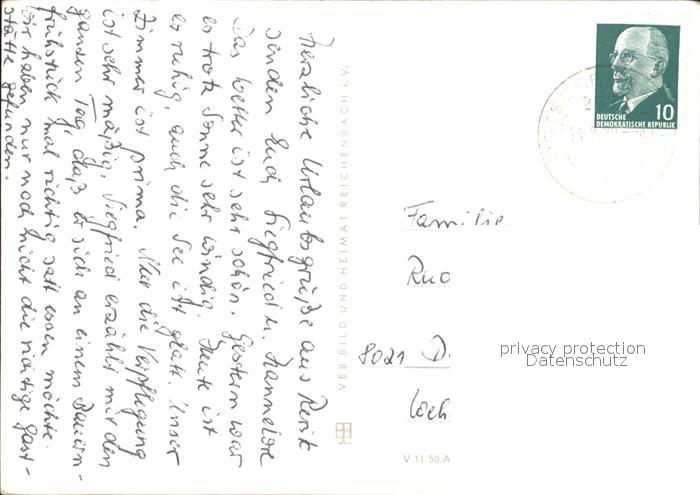 Herzliche Urlaubsgrüße aus Rerik
senden Euch Siegfried u. Hannelore
Das Wetter ist sehr schön. Gestern war
es trotz Sonne sehr windig. Heute ist
es ruhig, auch die See ist glatt. Unser
Zimmer ist prima. Nur die Verpflegung
ist sehr mäßig. Siegfried erzählt mir den
ganzen Tag, daß er sich an einem Bauern-
frühstück mal richtig satt essen möchte.
Wir haben nur noch nicht die richtige Gast-
stätte gefunden.
VEB BILD UND HEIMAT REICHENBACH i. V.
V 11 50 A
10
DEUTSCHE
DEMOKRATISCHE REPUBLIK
Familie
Rud
8021 D
privacy protection
Datenschutz